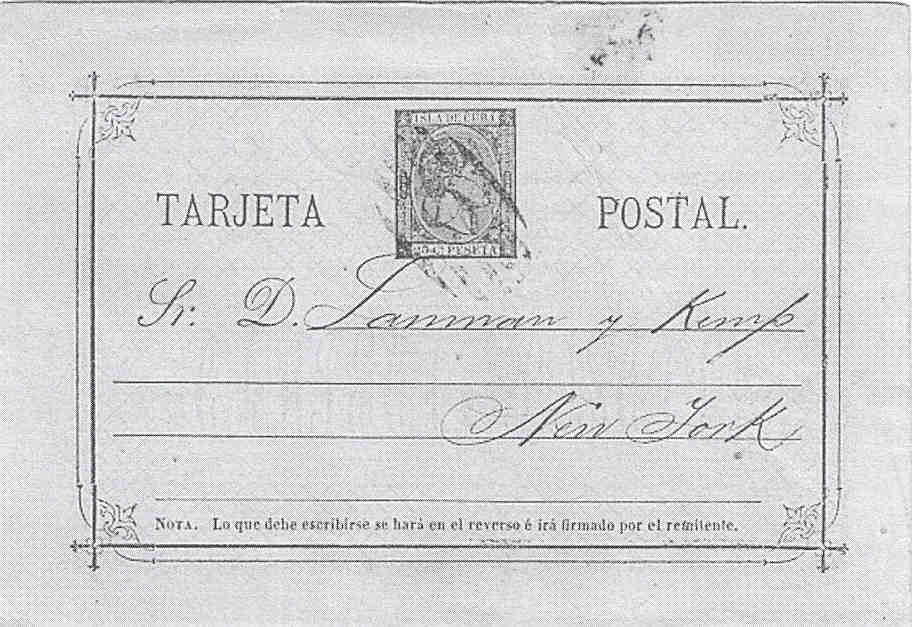 ISLA DE CUBA
TARJETA POSTAL.
25 Cs PESETA
Sr. D. Lanman y Kemp
New York
NOTA. Lo que debe escribirse se hará en el reverso é irá firmado por el remitente.